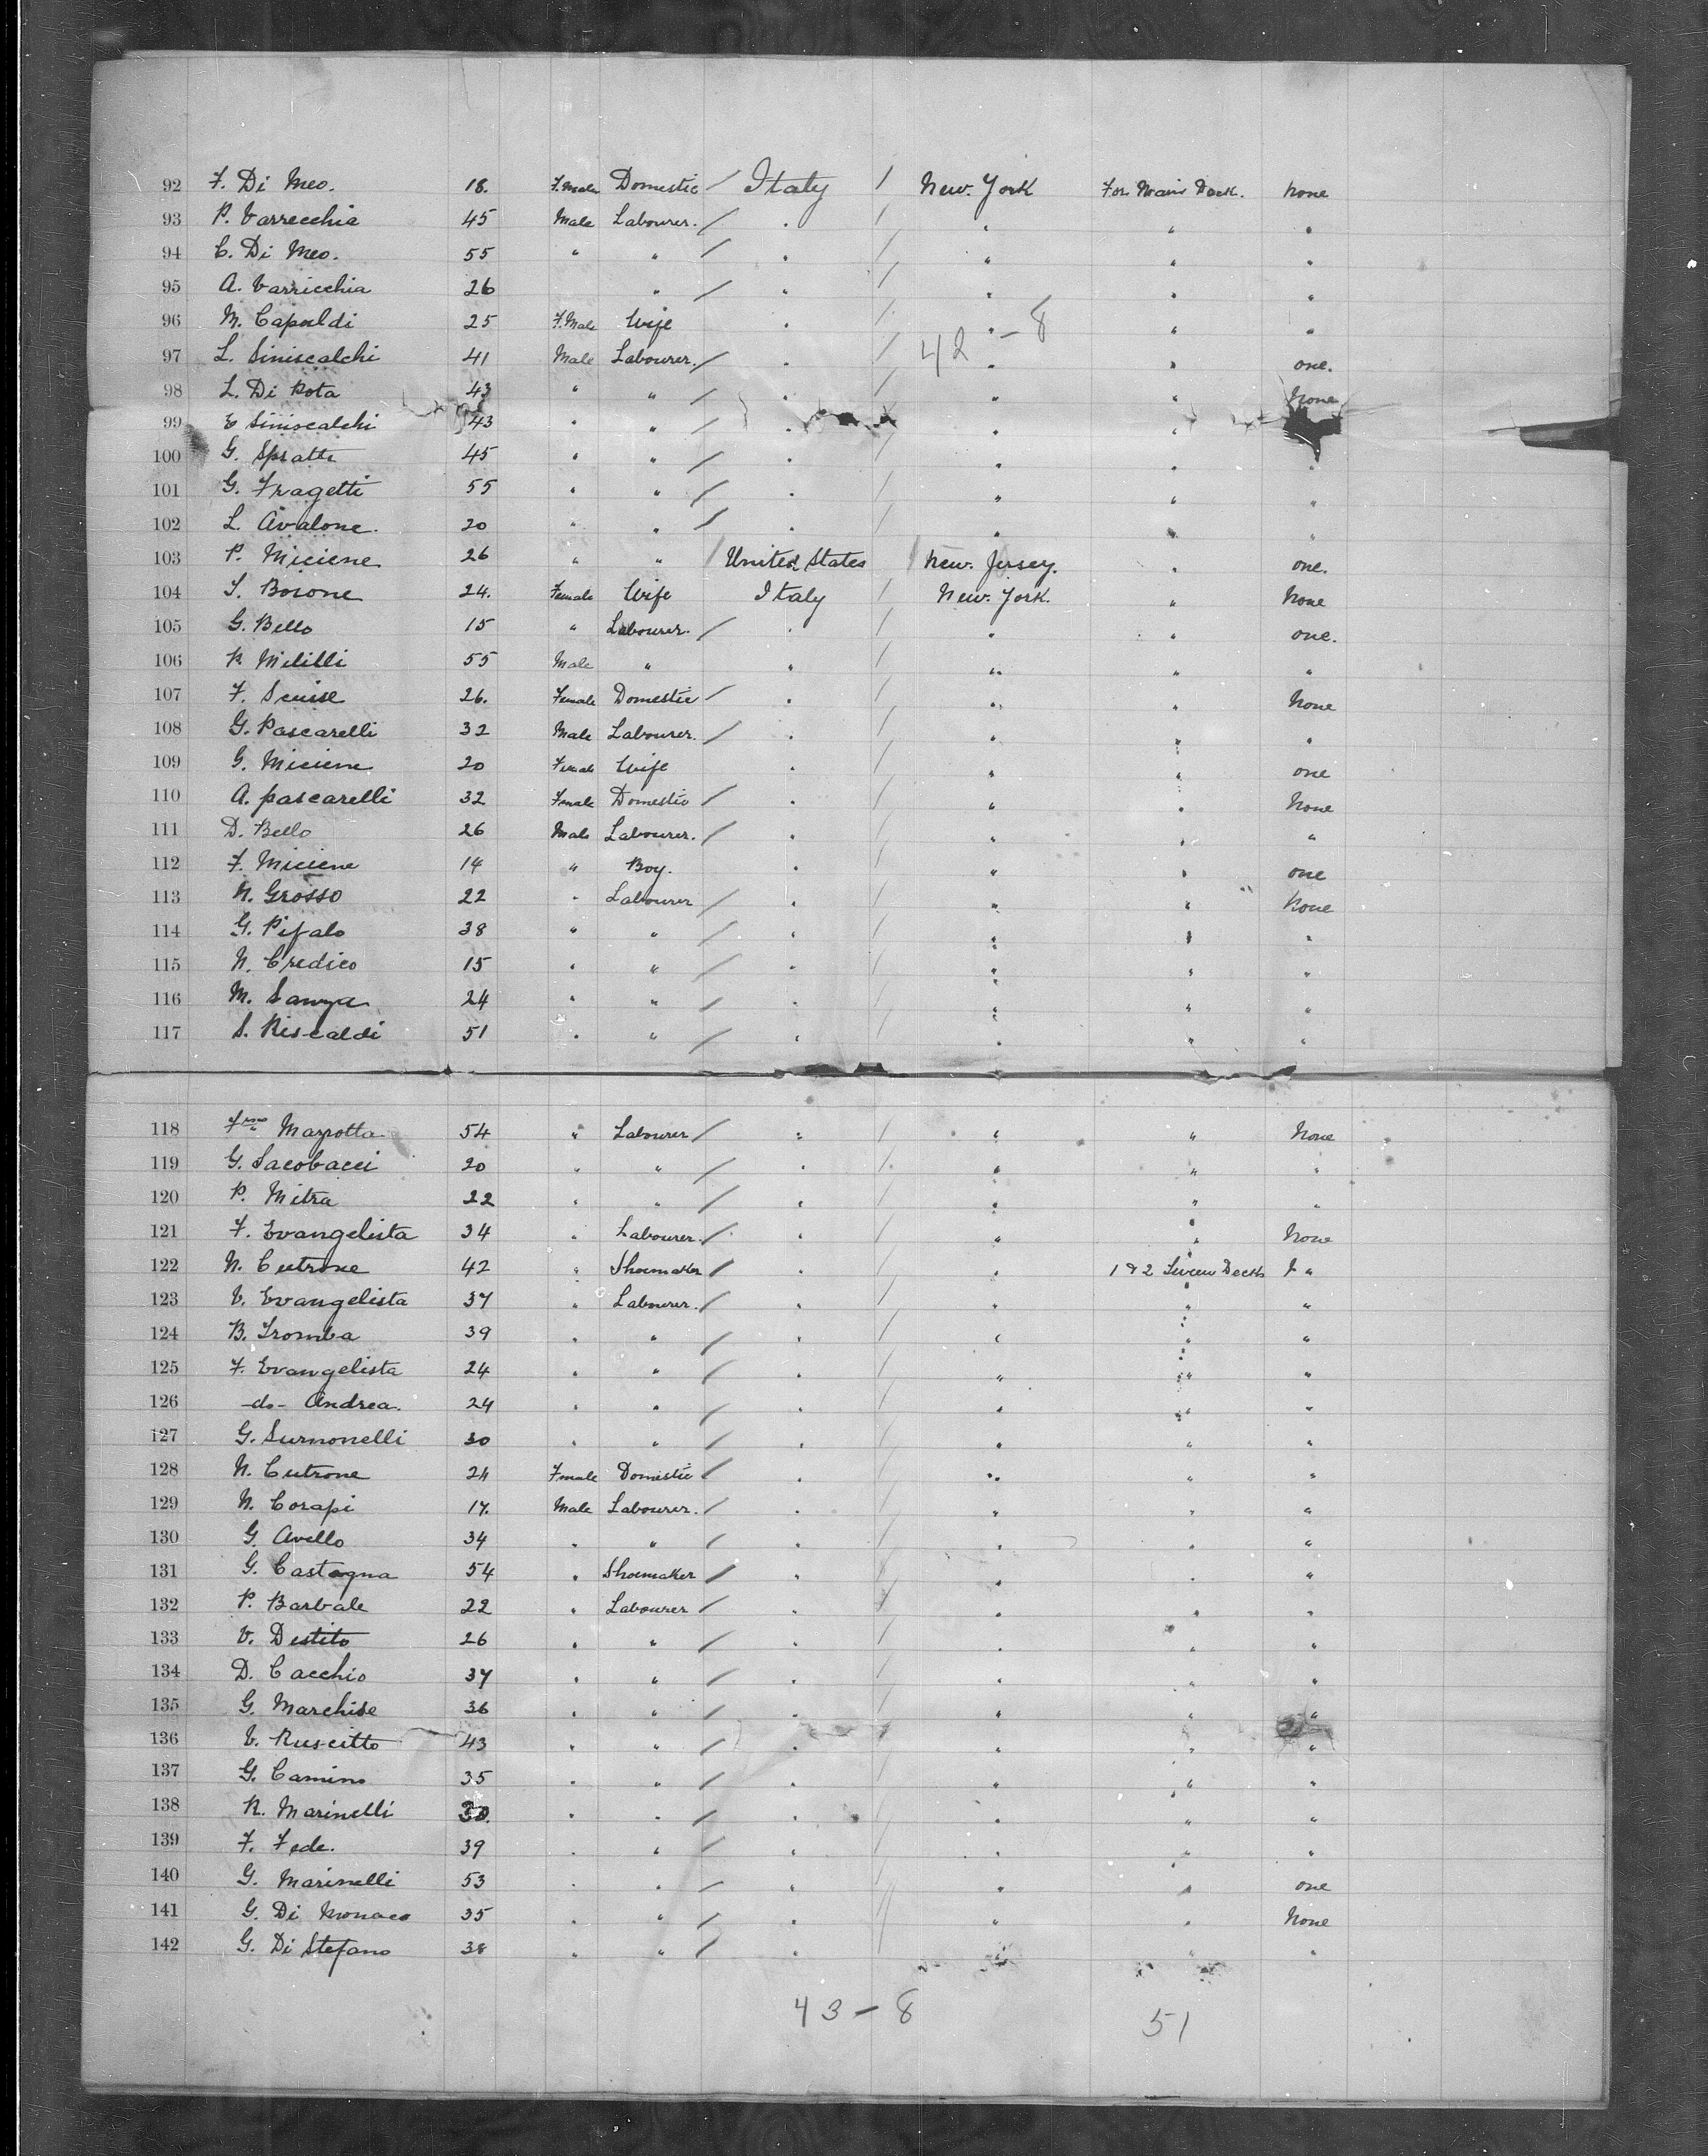 92 F. Di Meo. 18. F.Male Domestic / Italy / New. York For. Main Deck. None
93 P. Varrecchia 45 Male Labourer. / " / " " "
94 C. Di Meo. 55 " " / " / " " "
95 A. Varricchia 26 " / " / " " "
96 M. Capaldi 25 F.Male Wife " / " " "
42 - 8
97 L. Siniscalchi 41 Male Labourer. / " / " " one.
98 L. Di Rota 43 " " / " / " " None
99 E Siniscalchi 43 " " / " / " "
100 G. Spratti 45 " " / " / " " "
101 G. Fragetti 55 " " / " / " " "
102 L. Avalone. 20 " " / " / " " "
103 P. Miciene 26 " " / United States / New. Jersey. " one.
104 S. Boione 24. Female Wife Italy / New. York. " None
105 G. Bello 15 " Labourer. / " / " " one.
106 R Mililli 55 Male " " / " " "
107 F. Scuise 26. Female Domestic / " / " " None
108 G. Pascarelli 32 Male Labourer. / " / " " "
109 G. Miciene 20 Female Wife " / " " one
110 A. pascarelli 32 Female Domestic / " / " " None
111 D. Bello 26 Male Labourer. / " / " " "
112 F. Miciene 14 " Boy. " / " " one
113 N. Grosso 22 " Labourer / " / " " None
114 G. Pifalo 38 " " / " / " " "
115 N. Credico 15 " " / " / " " "
116 M. 24 " " / " / " " "
117 S. Riscaldi 51 " " / " / " " "
118 Mazzotta 54 " Labourer / " / " " None
119 G. Iacobacci 20 " " / " / " " "
120 P. Mitra 22 " " / " / " " "
121 F. Evangelista 34 " Labourer. / " / " " None
122 N. Cutrone 42 " Shoemaker / " / " 1 & 2 Decks "
123 V. Evangelista 37 " Labourer. / " / " " "
124 B. Tromba 39 " " / " / " " "
125 F. Evangelista 24 " " / " / " " "
126 -do- Andrea. 24 " " / " / " " "
127 G. Surnonelli 30 " " / " / " " "
128 N. Cutrone 24 Female Domestic / " / " " "
129 N. Corapi 17. Male Labourer. / " / " " "
130 G. Avello 34 " " / " / " " "
131 G. Castagna 54 " Shoemaker / " / " " "
132 P. Barbale 22 " Labourer / " / " " "
133 V. Destito 26 " " / " / " " "
134 D. Cacchio 37 " " / " / " " "
135 G. Marchise 36 " " / " / " " "
136 V. Ruscitto 43 " " / " / " " "
137 G. Camino 35 " " / " / " " "
138 R. Marinelli 30. " " / " / " " "
139 F. Fede. 39 " " / " / " " "
140 G. Marinelli 53 " " / " / " " one
141 G. Di Monaco 35 " " / " / " " None
142 G. Di Stefano 38 " " / " / " " "
43 - 8 51